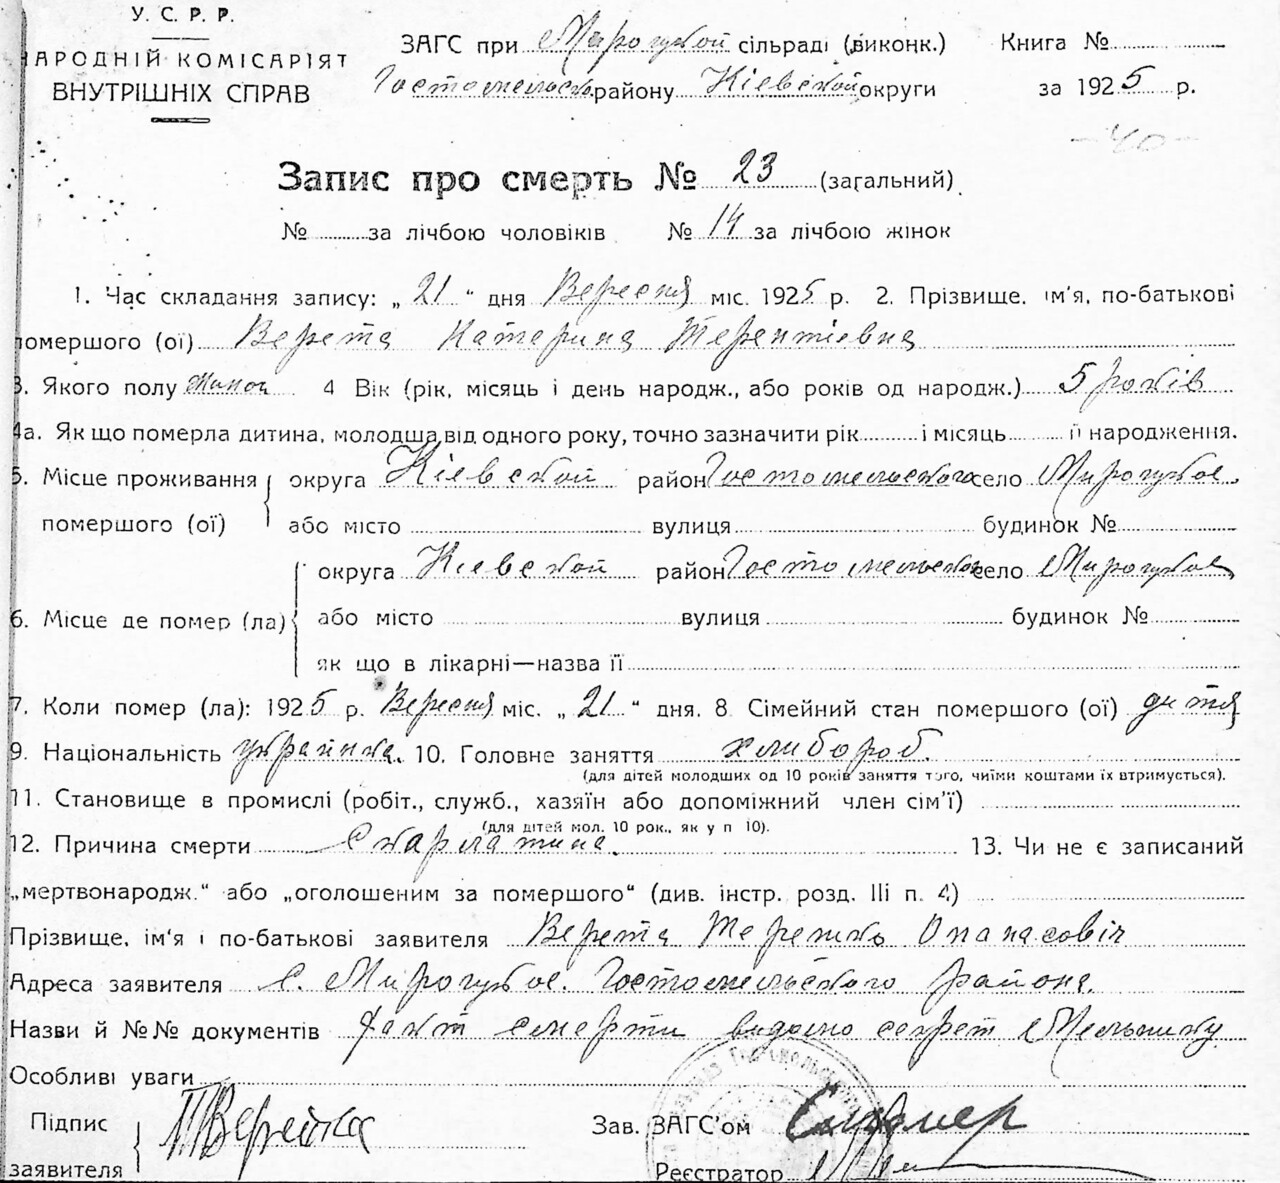 У. С. Р. Р.
НАРОДНІЙ КОМІСАРІЯТ
ВНУТРІШНІХ СПРАВ
ЗАГС при Мироцкой сільраді (виконк.)
Гостомельск. району Кіевской округи
Книга №
за 1925 р.
-40-
Запис про смерть № 23 (загальний)
№ за лічбою чоловіків № 14 за лічбою жінок
1. Час складання запису: „21“ дня Вересня міс. 1925 р. 2. Прізвище, ім'я, по-батькові
помершого (ої) Верета Катерина Терентіевна
3. Якого полу жиноч 4 Вік (рік, місяць і день народж., або років од народж.) 5 років
4а. Як що померла дитина, молодша від одного року, точно зазначити рік і місяць її народження.
5. Місце проживання округа Кіевской район Гостомельского село Мироцкое.
помершого (ої) або місто вулиця будинок №
округа Киевской район Гостомельской село Мироцкое
6. Місце де помер (ла) або місто вулиця будинок №
як що в лікарні—назва її
7. Коли помер (ла): 1925 р. Вересня міс. „21“ дня. 8 Сімейний стан помершого (ої) дитя
9. Національність украйнка. 10. Головне заняття хлибороб.
(для дітей молодших од 10 років заняття того, чиїми коштами їх втримується).
11. Становище в промислі (робіт., служб., хазяїн або допоміжний член сім'ї)
(для дітей мол. 10 рок., як у п 10).
12. Причина смерти Скарлатина. 13. Чи не є записаний
„мертвонародж.“ або „оголошеним за помершого“ (див. інстр. розд. III п. 4)
Прізвище, ім'я і по-батькові заявителя Верета Терешко Опанасовіч
Адреса заявителя с. Мироцкое. Гостомельского района.
Назви й №№ документів Факт смерти видомо секрет Мельнику
Особливі уваги
Підпис
заявителя
Зав. ЗАГС'ом
Реєстратор